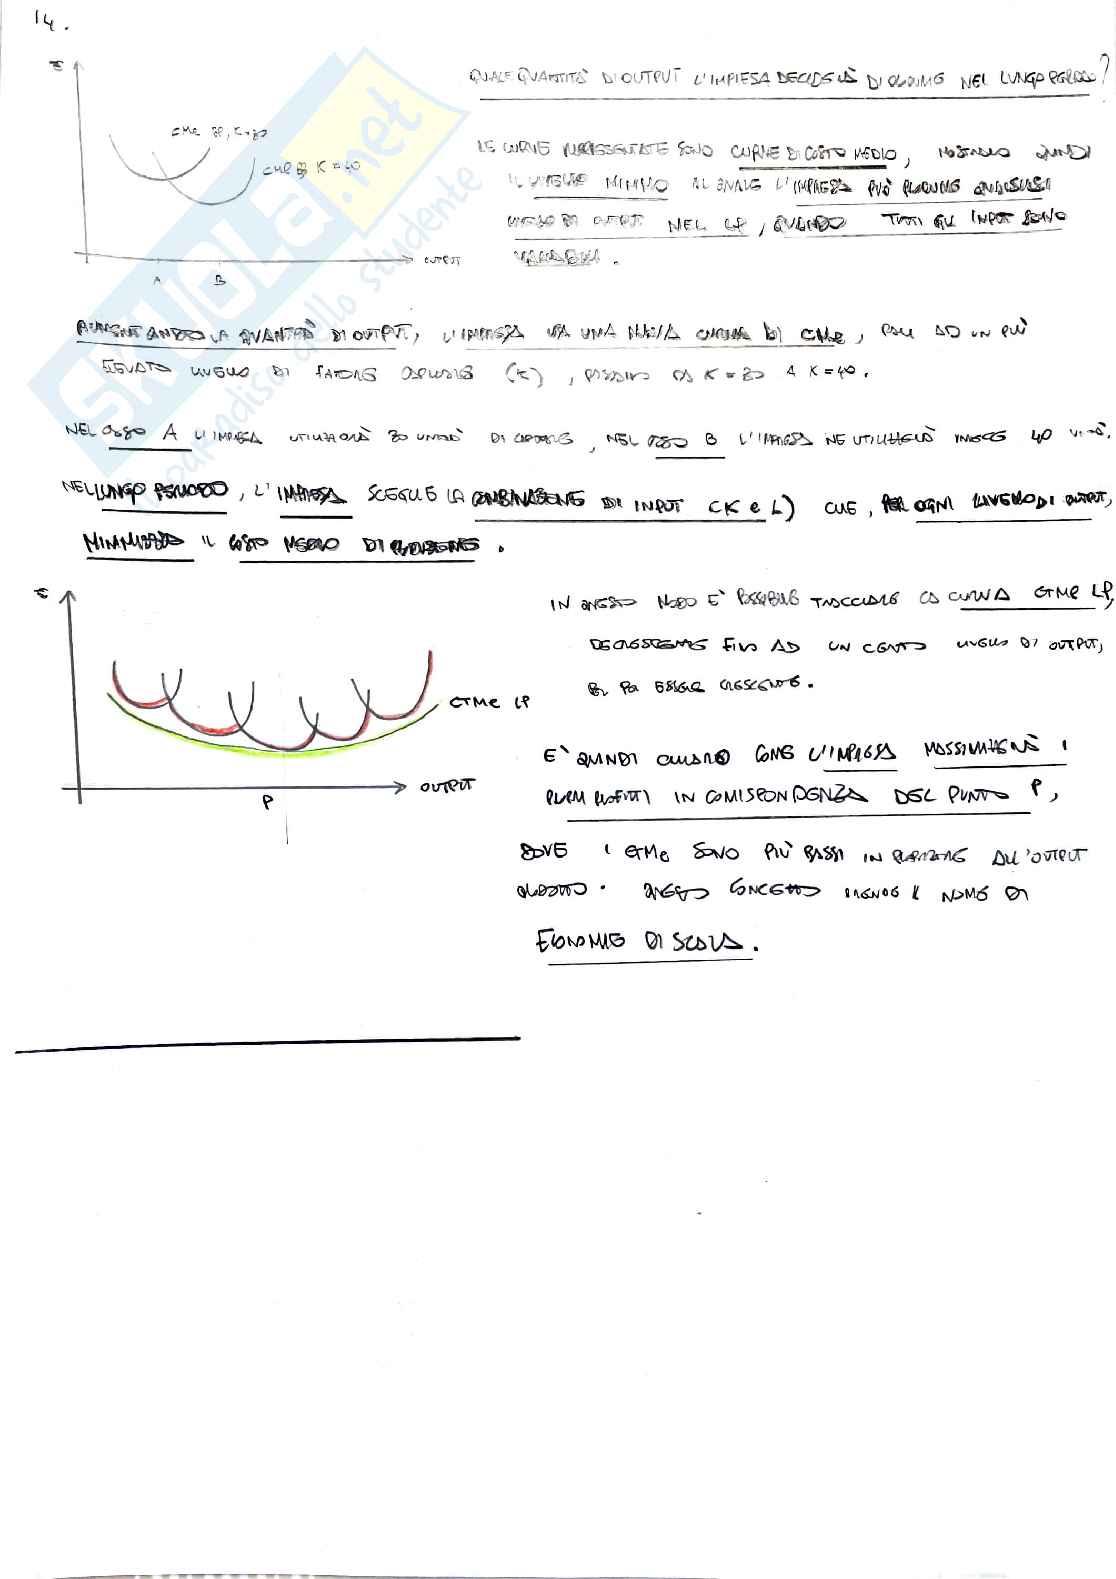 14.
€
QUALE QUANTITÀ DI OUTPUT L'IMPRESA DECIDERÀ DI PRODURRE NEL LUNGO PERIODO?
CMe BP, K=20
CMe BP K=40
LE CURVE RAPPRESENTATE SONO CURVE DI COSTO MEDIO, MOSTRANO QUINDI
IL LIVELLO MINIMO AL QUALE L'IMPRESA PUÒ PRODURRE QUALSIASI
LIVELLO DI OUTPUT NEL LP, QUANDO TUTTI GLI INPUT SONO
VARIABILI.
OUTPUT
A B
AUMENTANDO LA QUANTITÀ DI OUTPUT, L'IMPRESA HA UNA NUOVA CURVA DI CMe, PARI AD UN PIÙ
ELEVATO LIVELLO DI FATTORE CAPITALE (K), PASSANDO DA K=20 A K=40.
NEL CASO A L'IMPRESA UTILIZZERÀ 20 UNITÀ DI CAPITALE, NEL CASO B L'IMPRESA NE UTILIZZERÀ INVECE 40 UNITÀ.
NEL LUNGO PERIODO, L'IMPRESA SCEGLIE LA COMBINAZIONE DI INPUT (K e L) CHE, PER OGNI LIVELLO DI OUTPUT,
MINIMIZZA IL COSTO MEDIO DI PRODUZIONE.
€
IN QUESTO MODO E' POSSIBILE TRACCIARE LA CURVA CTMe LP,
DECRESCENTE FINO AD UN CERTO LIVELLO DI OUTPUT,
PER POI ESSERE CRESCENTE.
CTMe LP
E' QUINDI CHIARO COME L'IMPRESA MASSIMIZZERÀ I
PROPRI PROFITTI IN CORRISPONDENZA DEL PUNTO P,
OUTPUT
P
DOVE I CTMe SONO PIÙ BASSI IN RELAZIONE ALL'OUTPUT
PRODOTTO. QUESTO CONCETTO PRENDE IL NOME DI
ECONOMIE DI SCALA.
SKUOLA.net
paradiso dello studente